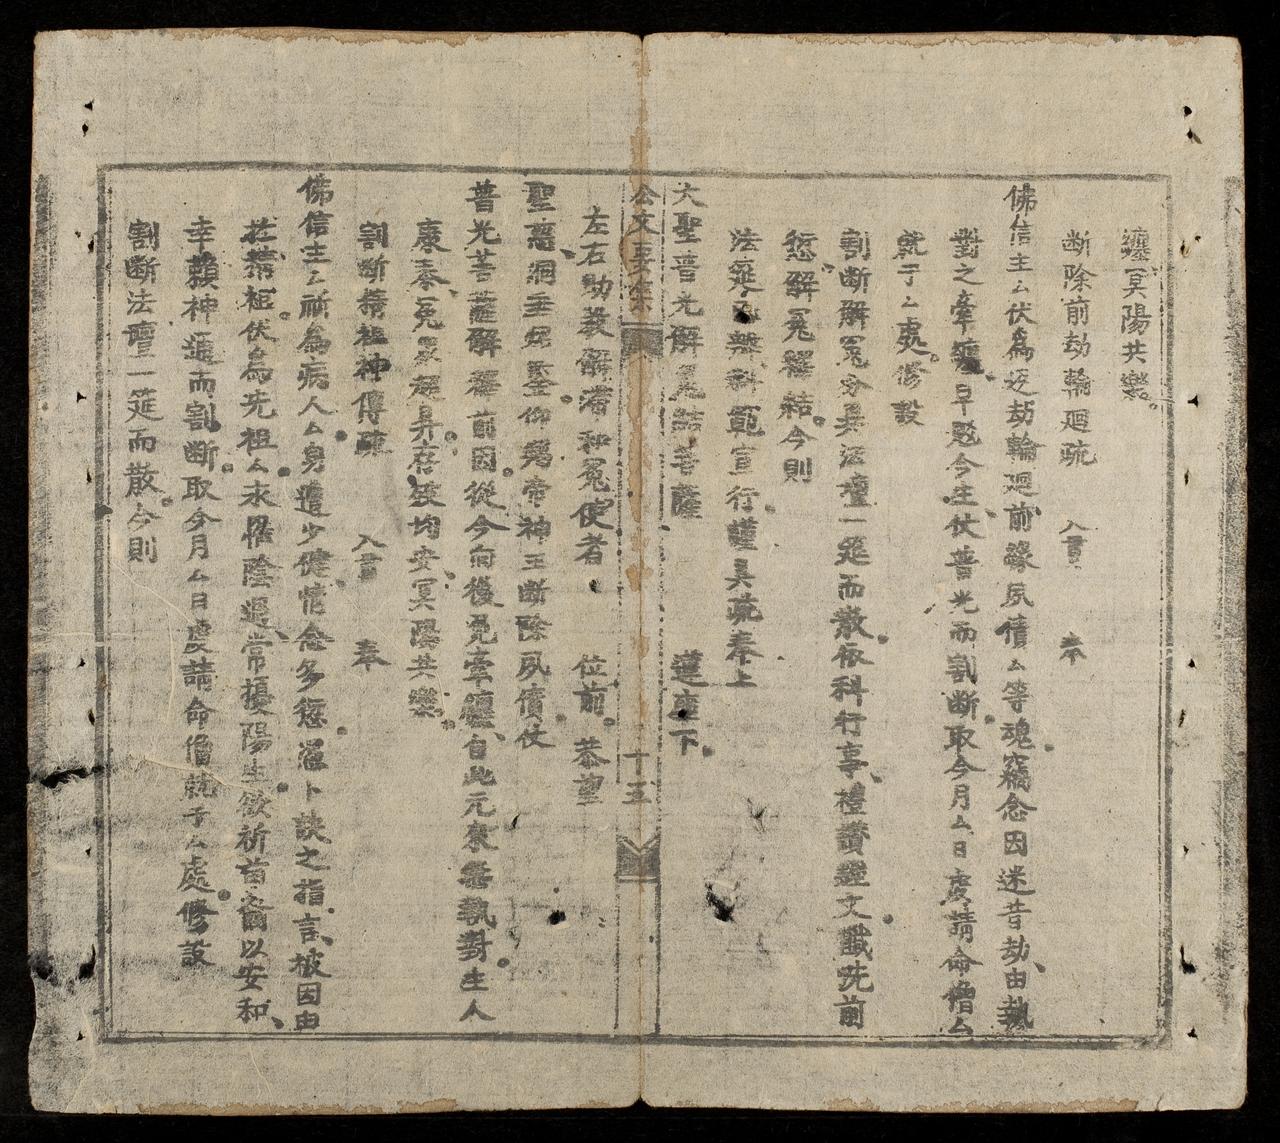 纏冥陽共樂
断除前劫輪廻疏 入書 奉
佛信主厶伏為 劫輪廻前緣夙債厶等魂竊念因迷昔劫由執
對之牽纏早 今生仗普光而割断取今月厶日虔請命僧厶
就于厶處修設
割断解冤分 法壇一筵而散依科行事禮讚經文懺洗前
愆解冤釋結今則
法筵 科範宣行謹具疏奉上
大聖普光解冤結菩薩 蓮座下
公文要集 十五
左右助教解 和冤使者 位前 恭望
聖慈洞垂 鑒仰 帝神王断除夙債仗
普光菩薩解釋前因從今向後免牽纏自此元來無執對生人
康泰 均安冥陽共樂
割断 神傳疏 入書 奉
佛信主厶祈為病人厶身遭少健情念多愆溫卜訣之指言被因由
伏為先祖厶 陰 常擾陽生 祈首 以安和
幸賴神通而割断取今月厶日虔請命僧就于厶處修設
割断法壇一筵而散今則